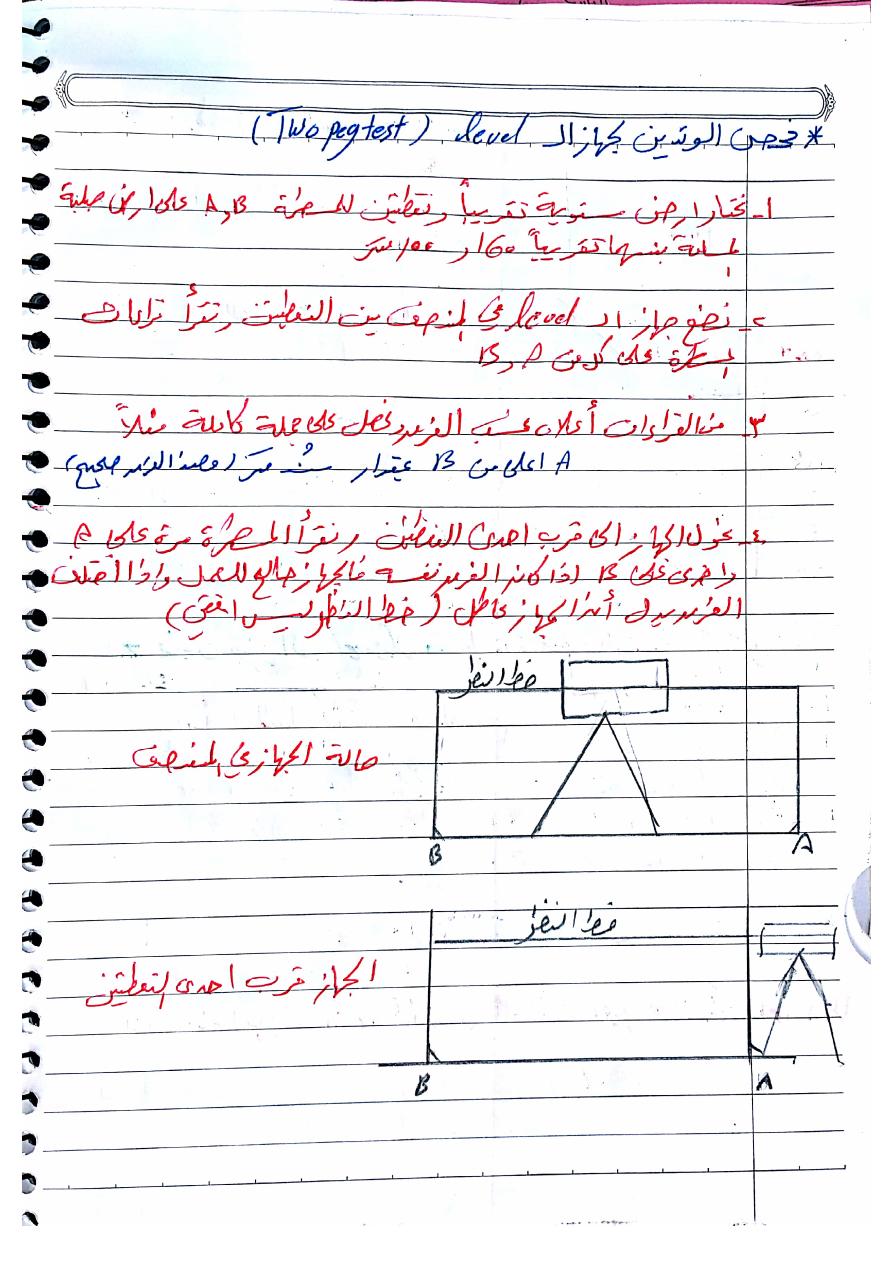 * فحص الوتدين لجهاز الـ level (Two peg test)
١- نختار ارض مستوية تقريباً ونقطتين للمسطرة A,B على ارض صلبة
المسافة بينهما تقريباً 60 او 100 متر
٢- نضع جهاز الـ level في المنصف بين النقطتين ونقرأ قراءات
المسطرة على كل من A و B
٣- من القراءات أعلاه نحسب الفرق ونحصل على جملة كاملة مثلاً
A اعلى من B بمقدار متر (وهذا الفرق صحيح)
٤- نحول الجهاز الى قرب احدى النقطتين ونقرأ المسطرة مرة على A
واخرى على B اذا كان الفرق نفسه فالجهاز صالح للعمل واذا اختلف
الفرق يدل أن الجهاز عاطل (خط النظر ليس افقي)
خط النظر
حالة الجهاز في المنتصف
B
A
خط النظر
الجهاز قرب احدى النقطتين
B
A